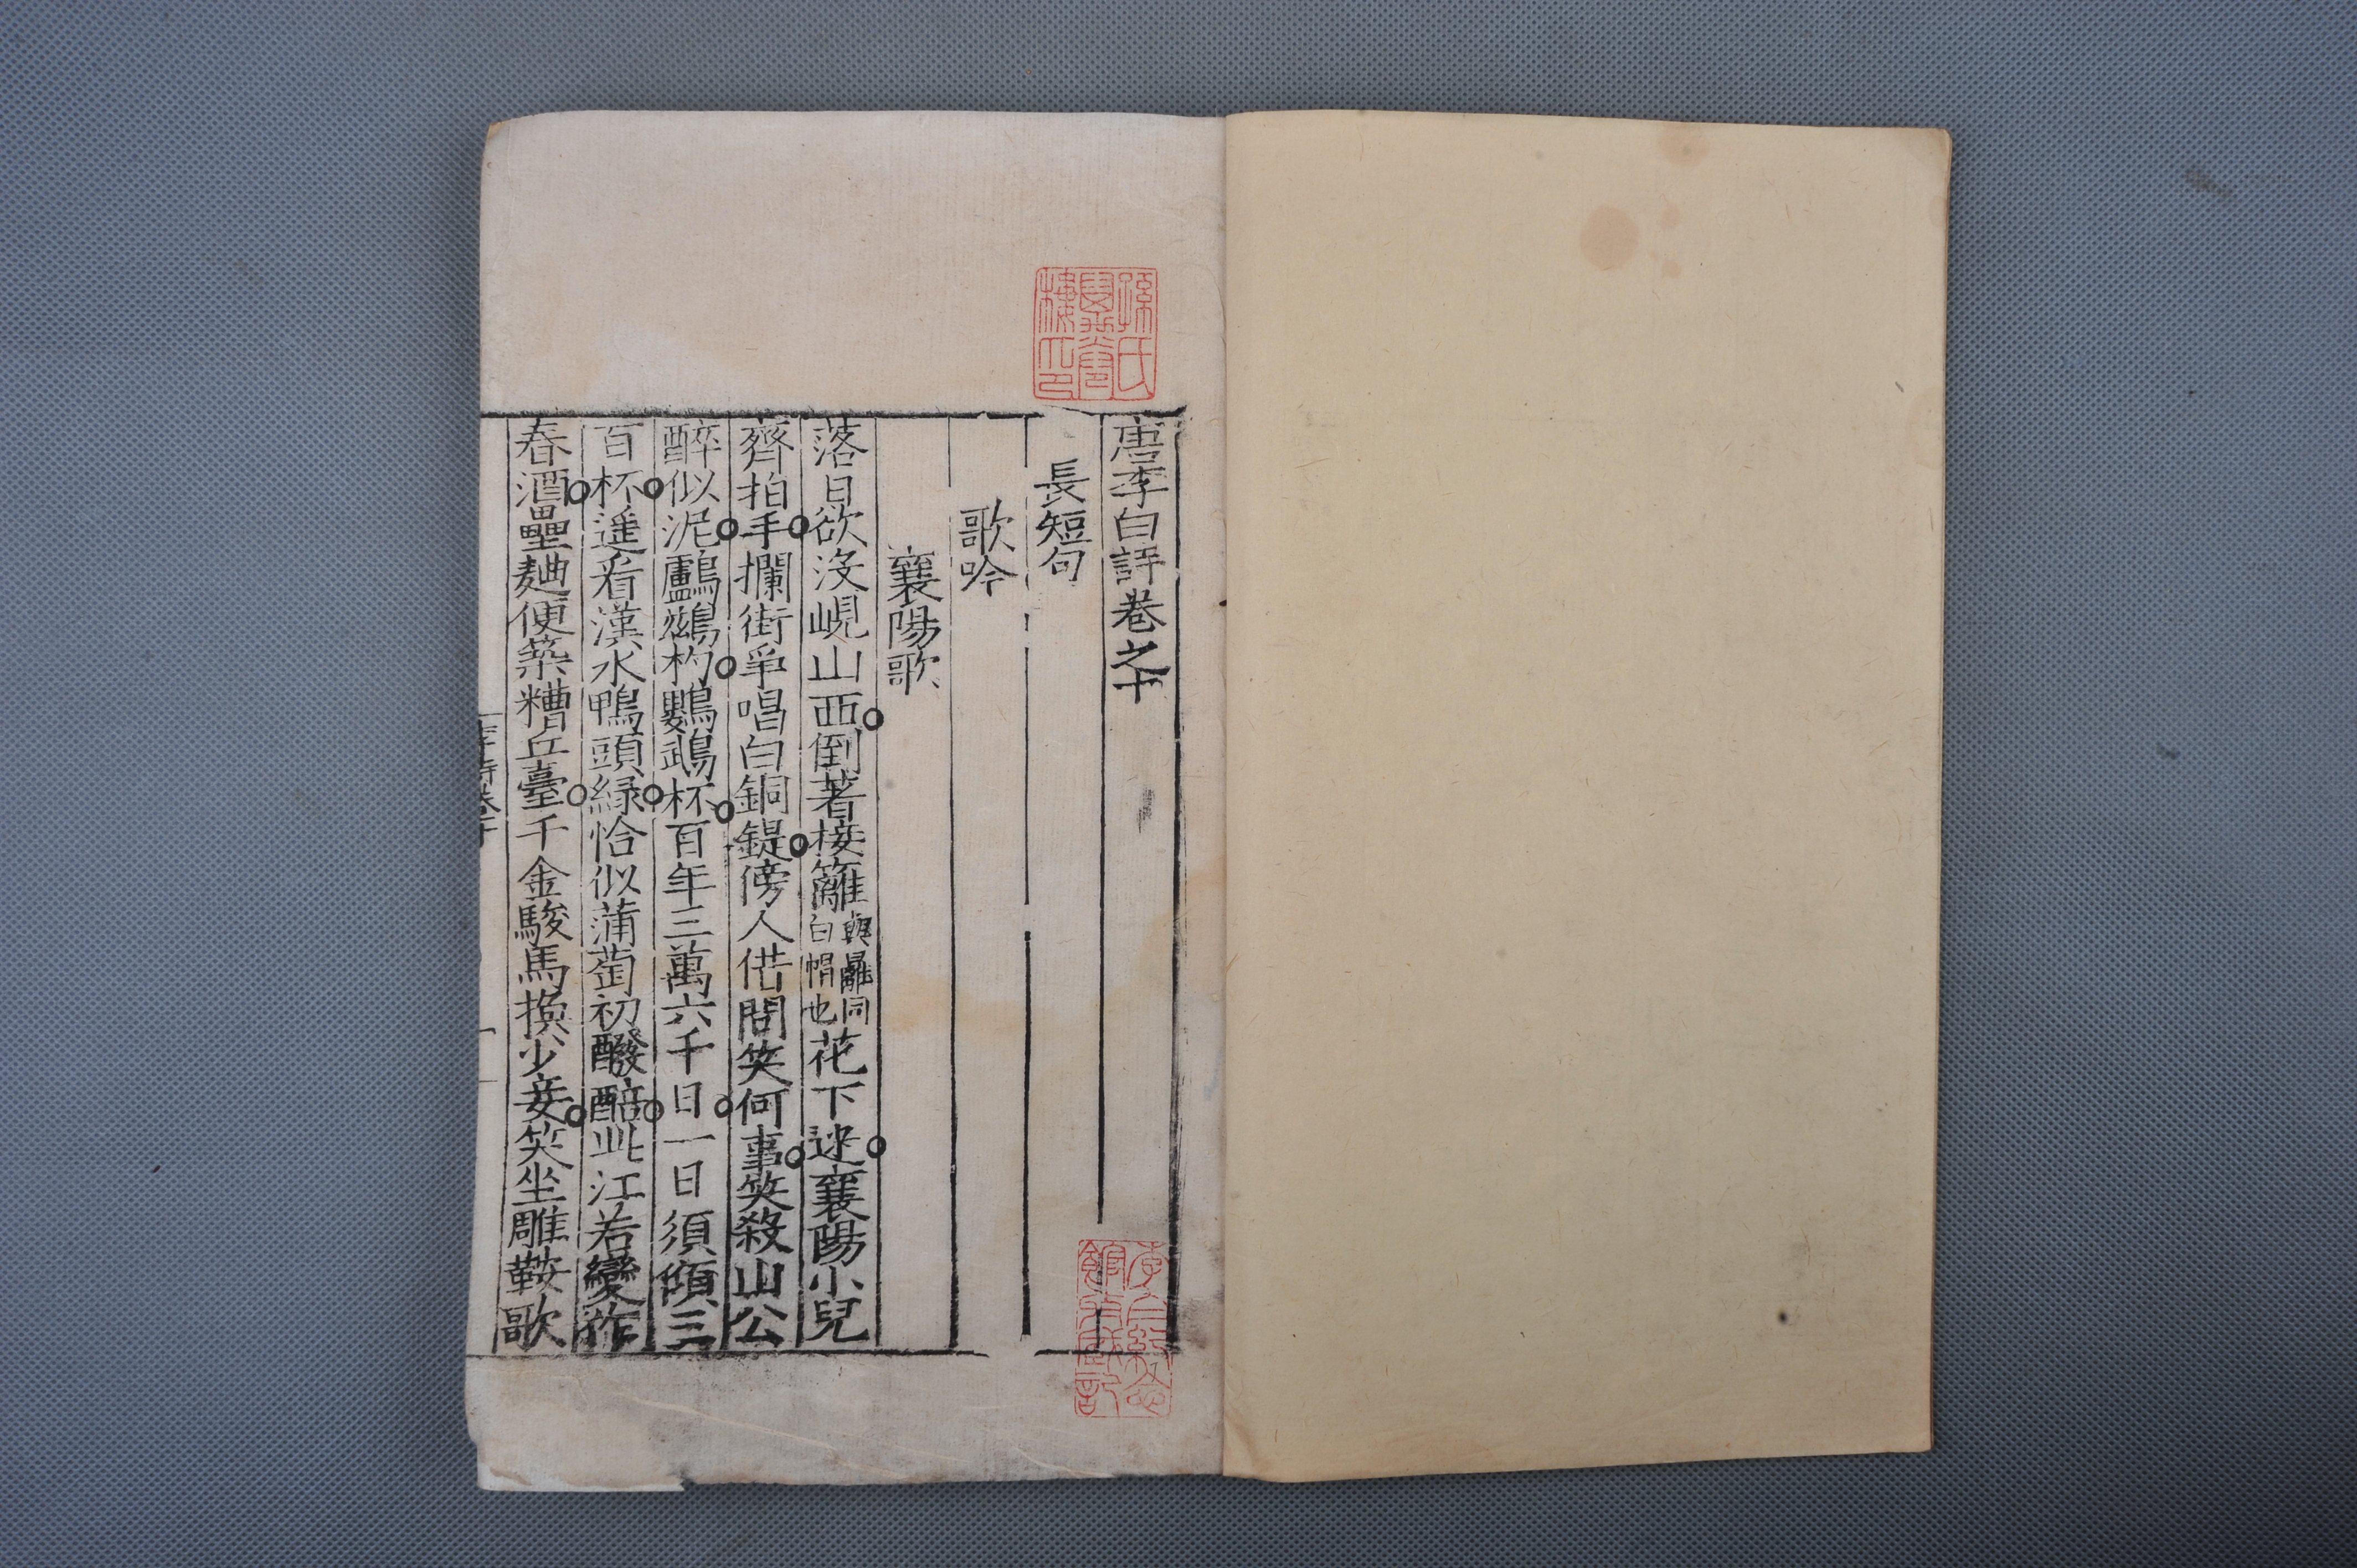 唐李白詩卷之十
長短句
歌吟
襄陽歌
落日欲沒峴山西倒著接籬與䍦同白帽也花下迷襄陽小兒
齊拍手攔街爭唱白銅鍉傍人借問笑何事笑殺山公
醉似泥鸕鷀杓鸚鵡杯百年三萬六千日一日須傾三
百杯遙看漢水鴨頭綠恰似蒲萄初醱醅此江若變作
春酒壘麯便築糟丘臺千金駿馬換少妾笑坐雕鞍歌
李詩卷十
孫氏萬卷樓印
李白紀念館藏